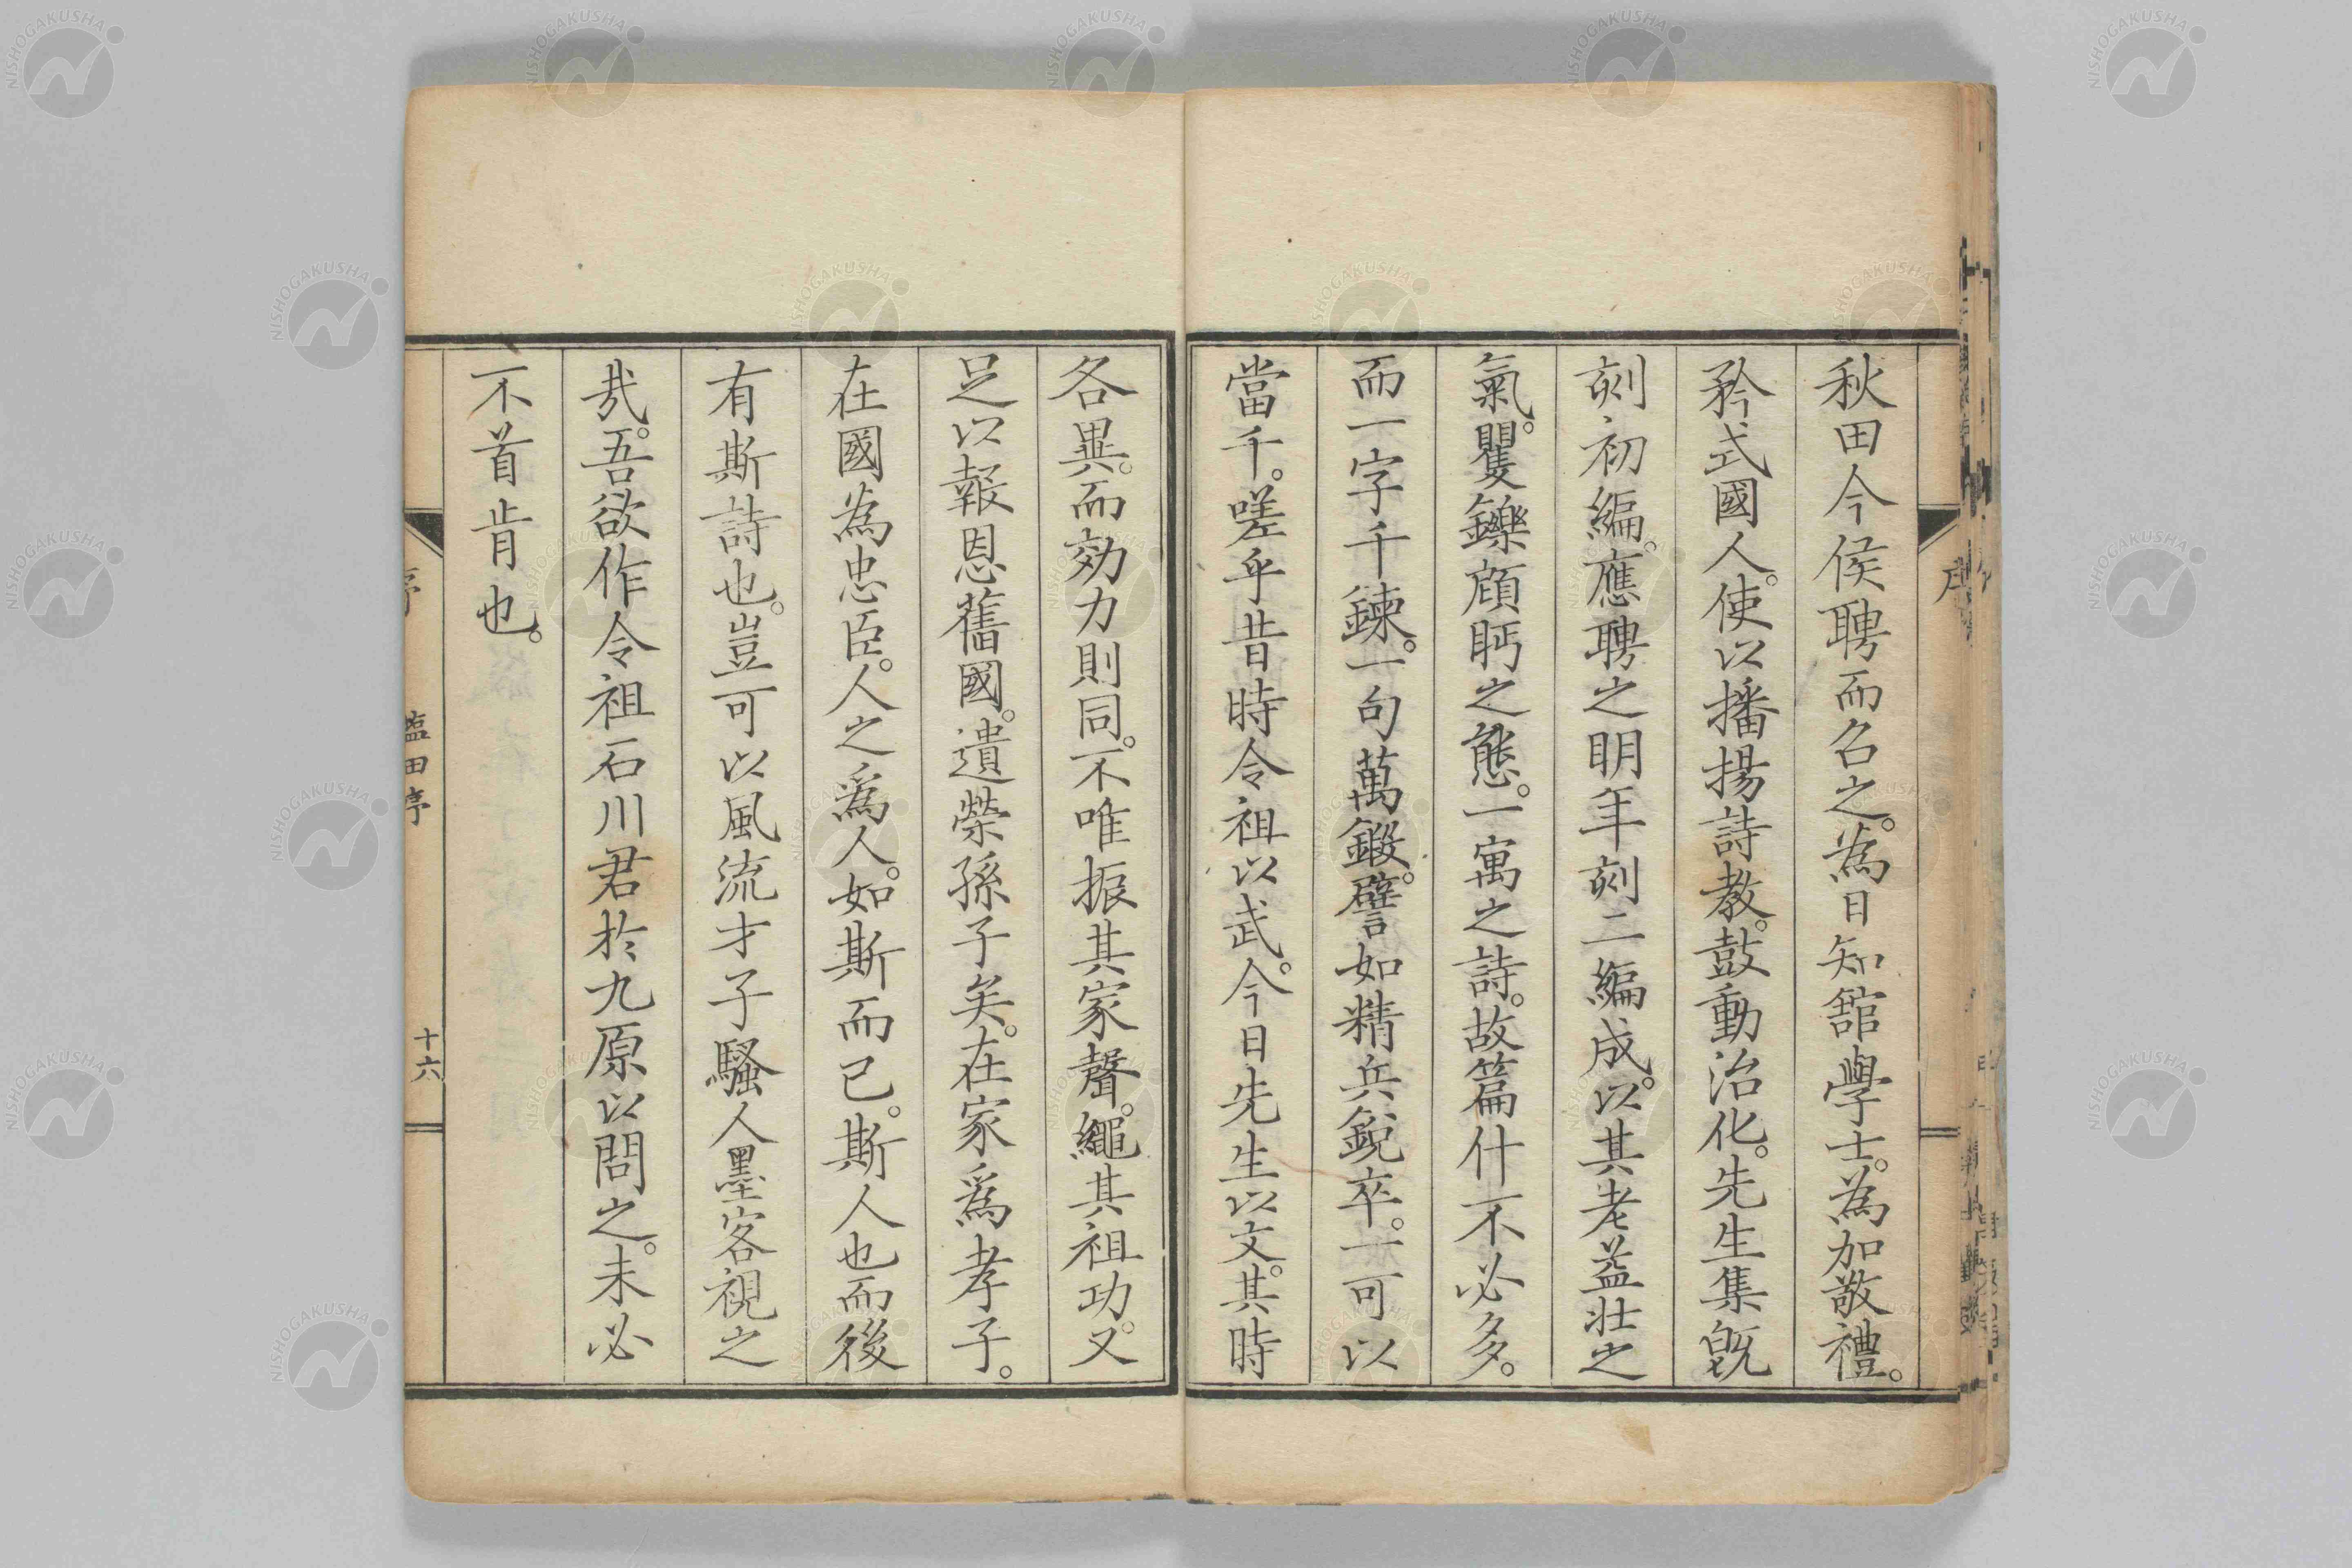 秋田今侯聘而名之。為日知舘學士。為加敬禮。
矜式國人。使以播揚詩教。鼓動治化。先生集既
刻初編。應聘之明年刻二編成。以其老益壮之
氣。矍鑠頋眄之態。一寓之詩。故篇什不必多。
而一字千鍊。一句萬鍛。譬如精兵銳卒。一可以
當千。嗟乎昔時令祖以武。今日先生以文。其時
各異。而効力則同。不唯振其家聲。繩其祖功。又
足以報恩舊國。遺榮孫子矣。在家爲孝子。
在國為忠臣。人之爲人。如斯而已。斯人也而後
有斯詩也。豈可以風流才子騷人墨客視之
哉。吾欲作令祖石川君於九原以問之。未必
不首肯也。
序 塩田序 十六
NISHOGAKUSHA